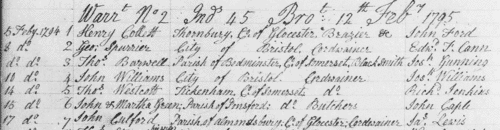 Warrt. No 2 Ind 45 Brot. 12th Feby 1795
5 Feby. 1794 1 Henry Collett Thornbury, C. of Glocester Brazier &c John Ford
8 do 2 Geo. Spurrier City of Bristol, Cordwainer Edwd. T. Cann
do do 3 Thos. Barwell Parish of Bedminster, C. of Somerset, Black Smith Jos. Gunning
10 do 4 John Williams City of Bristol Cordwainer Jos. Williams
14 do 5 Thos. Westcott Tickenham, C. of Somerset, do Richd. Jenkins
15 do 6 John & Martha Green; Parish of do Butchers John Caple
17 do 7 John Parish of Almondsbury; C. of Glocester; Cordwainer Jas. Lewis